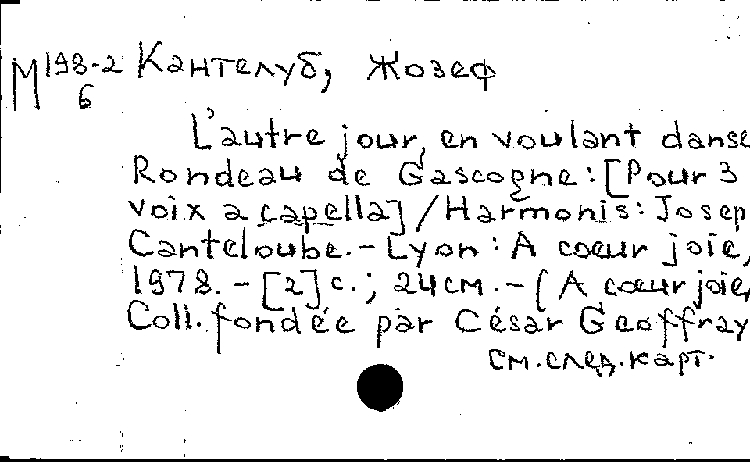 М 198-2 Кантелуб, Жозеф
6
L'autre jour, en voulant danse
Rondeau de Gascogne: [Pour 3
voix a capella] / Harmonis: Josep
Canteloube. - Lyon: A cœur joie,
1978. - [2] с.; 24 см. - (A cœur joie,
Coll. fondée par César Geoffray
См. след. карт.